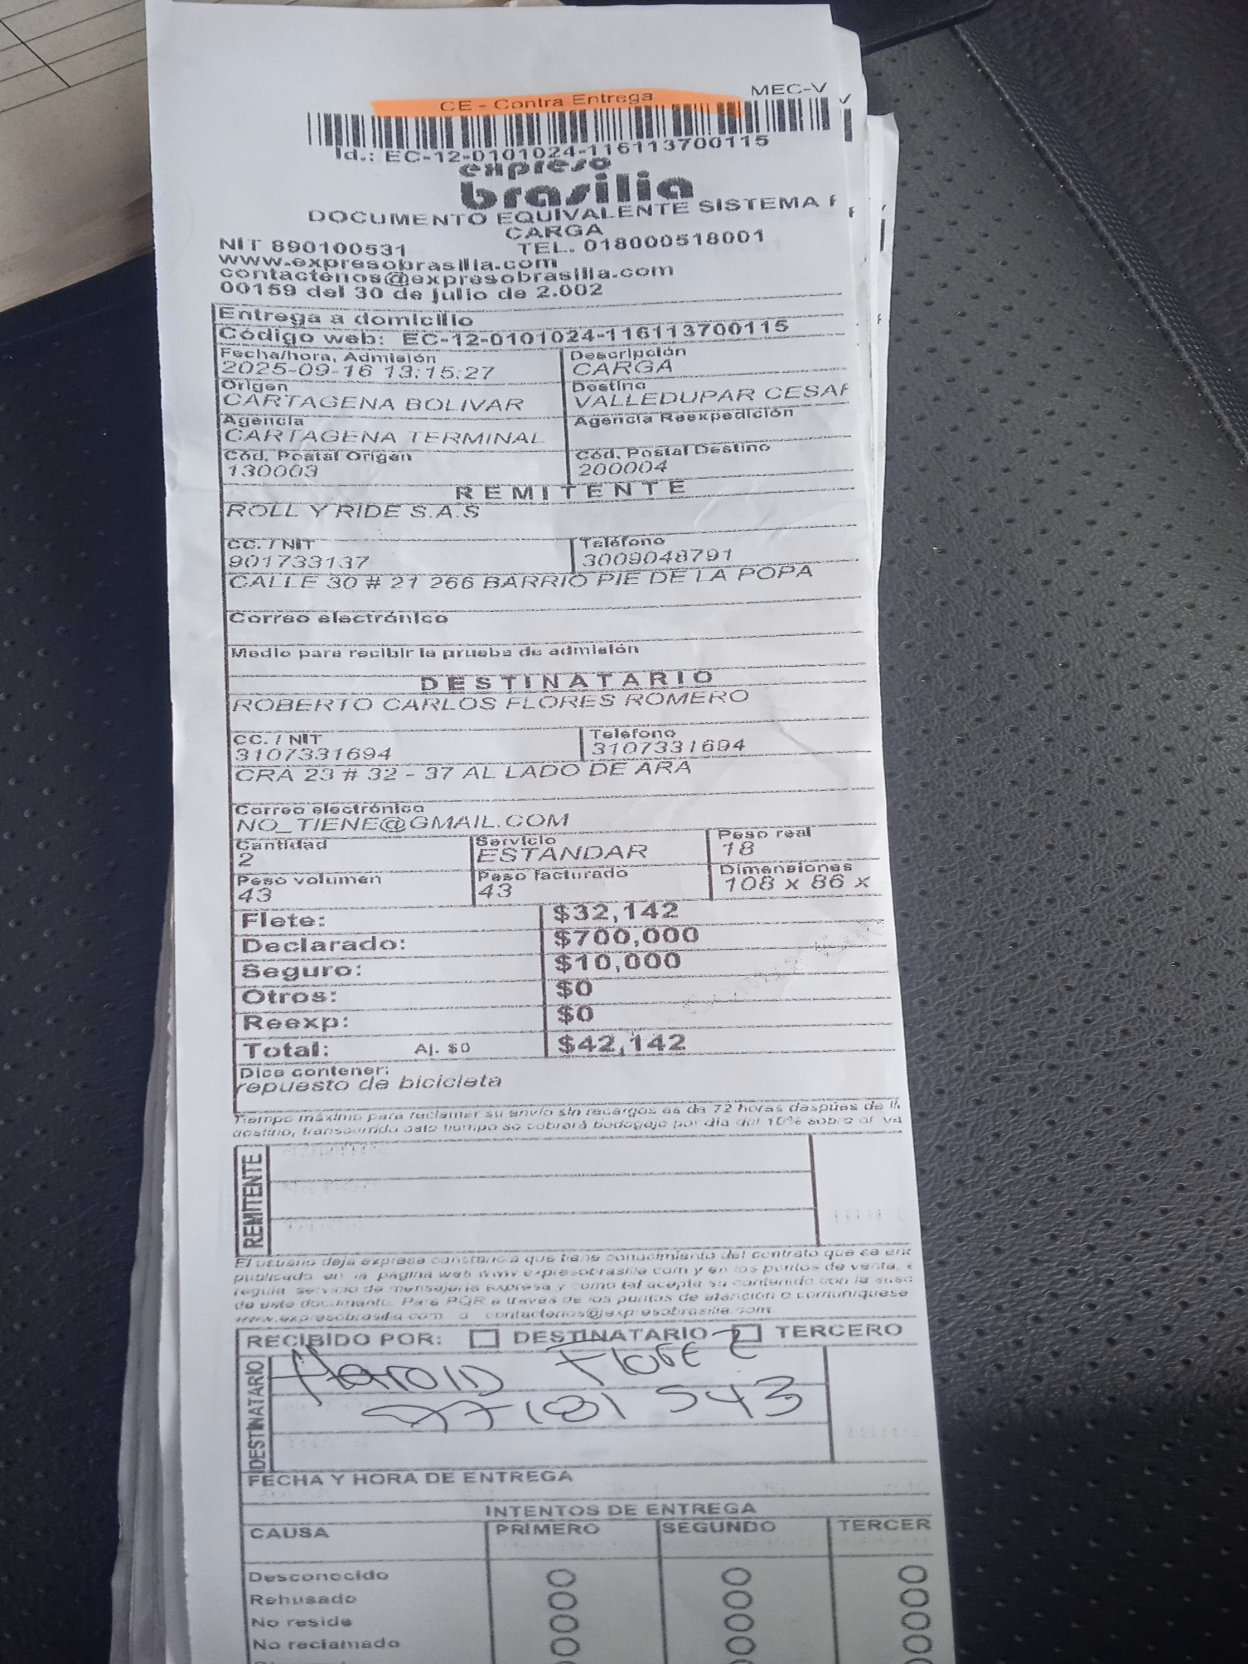 CE - Contra Entrega
MEC-V
Id.: EC-12-0101024-116113700115
expreso
brasilia
DOCUMENTO EQUIVALENTE SISTEMA
CARGA
NIT 890100531 TEL. 018000518001
www.expresobrasilia.com
contactenos@expresobrasilia.com
00159 del 30 de julio de 2.002
Entrega a domicilio
Código web: EC-12-0101024-116113700115
Fecha/hora. Admisión Descripción
2025-09-16 13:15:27 CARGA
Origen Destino
CARTAGENA BOLIVAR VALLEDUPAR CESAR
Agencia Agencia Reexpedición
CARTAGENA TERMINAL
Cód. Postal Origen Cód. Postal Destino
130003 200004
REMITENTE
ROLL Y RIDE S.A.S
CC. / NIT Teléfono
901733137 3009048791
CALLE 30 # 21 266 BARRIO PIE DE LA POPA
Correo electrónico
Medio para recibir la prueba de admisión
DESTINATARIO
ROBERTO CARLOS FLORES ROMERO
CC. / NIT Teléfono
3107331694 3107331694
CRA 23 # 32 - 37 AL LADO DE ARA
Correo electrónico
NO_TIENE@GMAIL.COM
Cantidad Servicio Peso real
2 ESTANDAR 18
Peso volumen Peso facturado Dimensiones
43 43 108 x 86 x
Flete: $32,142
Declarado: $700,000
Seguro: $10,000
Otros: $0
Reexp: $0
Total: Aj. $0 $42,142
Dice contener:
repuesto de bicicleta
Tiempo máximo para reclamar su envío sin recargos es de 72 horas después de
destino, transcurrido este tiempo se cobrará bodegaje por día del 10% sobre el
REMITENTE
El usuario deja expresa constancia que tiene conocimiento del contrato que se
publicado en la página web www.expresobrasilia.com y en los puntos de venta,
regula servicio de mensajería expresa y como tal acepta su contenido con la
de este documento. Para PQR a través de los puntos de atención o comuníquese
www.expresobrasilia.com o contactenos@expresobrasilia.com.
RECIBIDO POR: DESTINATARIO TERCERO
DESTINATARIO
Harold Flore
77181543
FECHA Y HORA DE ENTREGA
INTENTOS DE ENTREGA
CAUSA PRIMERO SEGUNDO TERCER
Desconocido
Rehusado
No reside
No reclamado